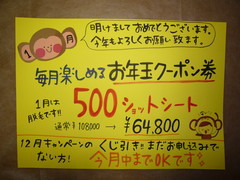 明けましておめでとうございます。
今年もよろしくお願い致します。
1月
毎月楽しめるお年玉クーポン券
1月は
脱毛です!!
500ショットシート
通常¥108000→¥64.800
12月キャンペーンのくじ引き!!まだお申し込みで
ない方!今月中までOKです